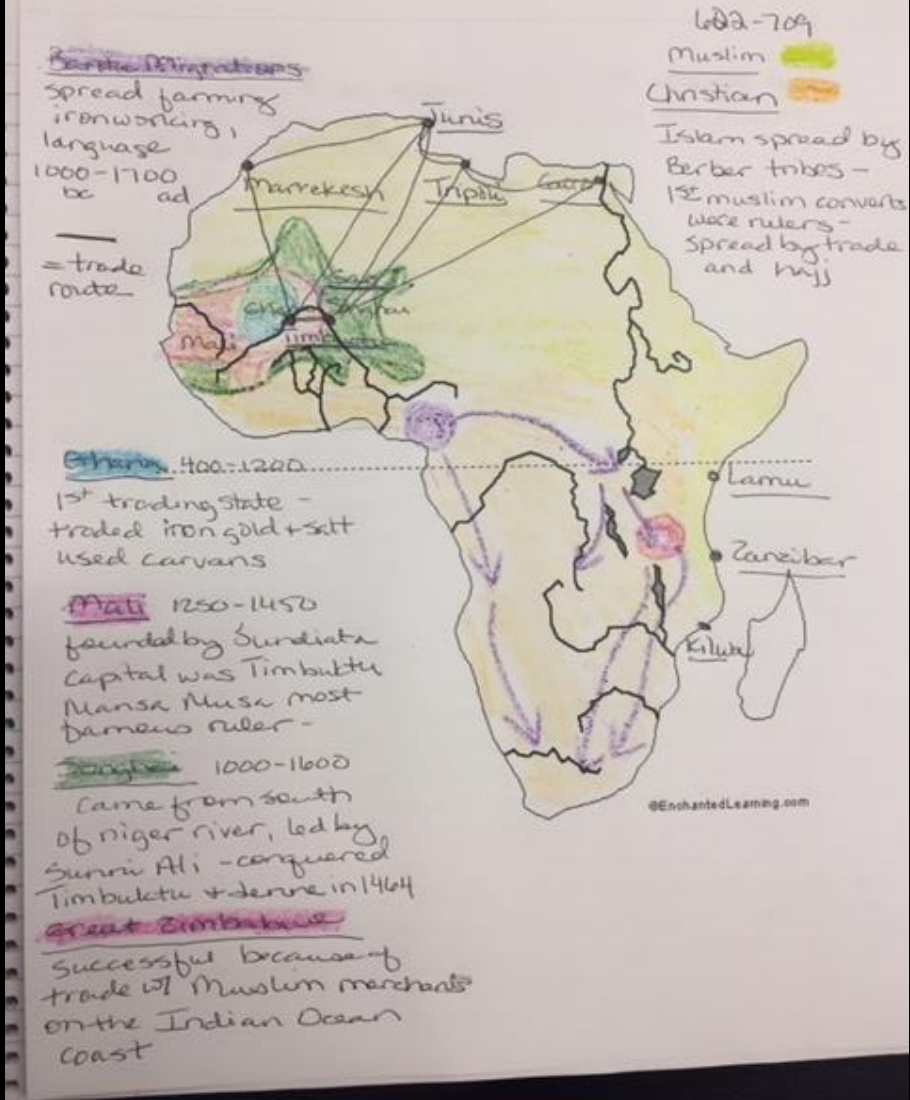 Bantu Migrations
spread farming
ironworking,
language
1000-1700
bc ad
= trade
route
622-709
Muslim
Christian
Islam spread by
Berber tribes-
1st muslim converts
were rulers-
spread by trade
and hajj
Tunis
Marrekesh
Tripoli
Cairo
Gao
Ghana
Songhai
Mali
Timbuktu
Lamu
Zanzibar
Kilwa
©EnchantedLearning.com
Ghana 400-1200
1st trading state -
traded iron gold + salt
used carvans
Mali 1250-1450
founded by Sundiata
capital was Timbuktu
Mansa Musa most
famous ruler -
Songhai 1000-1600
came from south
of niger river, led by
Sunni Ali - conquered
Timbuktu + Jenne in 1464
Great Zimbabwe
successful because of
trade w/ Muslim merchants
on the Indian Ocean
coast